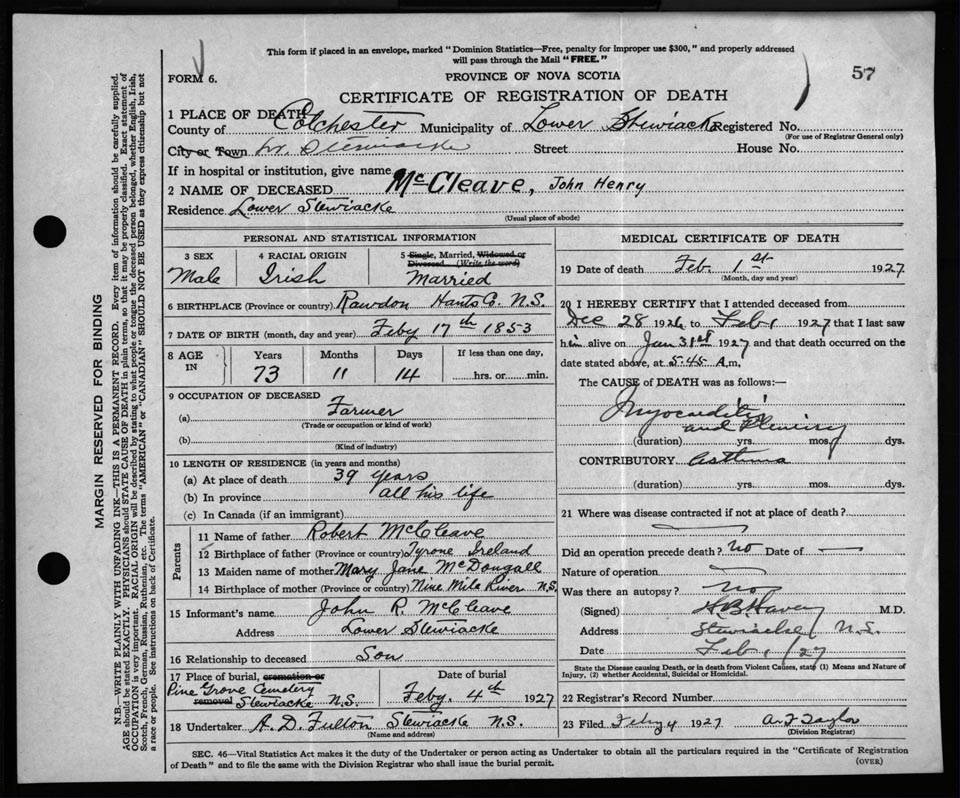 This form if placed in an envelope, marked "Dominion Statistics—Free, penalty for improper use $300," and properly addressed
will pass through the Mail "FREE."
57
FORM 6.
PROVINCE OF NOVA SCOTIA
CERTIFICATE OF REGISTRATION OF DEATH
1 PLACE OF DEATH
County of Colchester Municipality of Lower Stewiacke Registered No.
(For use of Registrar General only)
City or Town Lr. Stewiacke Street House No.
If in hospital or institution, give name
2 NAME OF DECEASED McCleave, John Henry
Residence Lower Stewiacke
(Usual place of abode)
PERSONAL AND STATISTICAL INFORMATION
3 SEX 4 RACIAL ORIGIN 5 Single, Married, Widowed or
Divorced (Write the word)
Male Irish Married
6 BIRTHPLACE (Province or country) Rawdon Hants Co. N.S.
7 DATE OF BIRTH (month, day and year) Feby 17th 1853
8 AGE IN Years Months Days If less than one day,
73 11 14 hrs. or min.
9 OCCUPATION OF DECEASED
(a) Farmer
(Trade or occupation or kind of work)
(b)
(Kind of industry)
10 LENGTH OF RESIDENCE (in years and months)
(a) At place of death 39 years
(b) In province all his life
(c) In Canada (if an immigrant)
Parents
11 Name of father Robert McCleave
12 Birthplace of father (Province or country) Tyrone Ireland
13 Maiden name of mother Mary Jane McDougall
14 Birthplace of mother (Province or country) Nine Mile River N.S.
15 Informant's name John R. McCleave
Address Lower Stewiacke
16 Relationship to deceased Son
17 Place of burial, cremation or Date of burial
Pine Grove Cemetery
removal Stewiacke N.S. Feby. 4th 1927
18 Undertaker A. D. Fulton Stewiacke N.S.
(Name and address)
MEDICAL CERTIFICATE OF DEATH
19 Date of death Feb. 1st 1927
(Month, day and year)
20 I HEREBY CERTIFY that I attended deceased from
Dec 28 1926 to Feb 1 1927 that I last saw
him alive on Jan 31st 1927 and that death occurred on the
date stated above, at 5.45 A.m,
The CAUSE of DEATH was as follows:—
Myocarditis
and Pleurisy
(duration) yrs. mos. dys.
CONTRIBUTORY Asthma
(duration) yrs. mos. dys.
21 Where was disease contracted if not at place of death?
Did an operation precede death? No Date of —
Nature of operation
Was there an autopsy? No
(Signed) M.D.
Address Stewiacke N.S.
Date Feb 1/27
State the Disease causing Death, or in death from Violent Causes, state (1) Means and Nature of
Injury, (2) whether Accidental, Suicidal or Homicidal.
22 Registrar's Record Number
23 Filed Feby 4 1927 Taylor
(Division Registrar)
SEC. 46—Vital Statistics Act makes it the duty of the Undertaker or person acting as Undertaker to obtain all the particulars required in the "Certificate of Registration
of Death" and to file the same with the Division Registrar who shall issue the burial permit.
(OVER)
MARGIN RESERVED FOR BINDING
N.B.—WRITE PLAINLY WITH UNFADING INK—THIS IS A PERMANENT RECORD. Every item of information should be carefully supplied.
AGE should be stated EXACTLY. PHYSICIANS should STATE CAUSE OF DEATH in plain terms, so that it may be properly classified. Exact statement of
OCCUPATION is very important. RACIAL ORIGIN will be described by stating to what people or tongue the deceased person belonged, whether English, Irish,
Scotch, French, German, Russian, Ruthenian, etc. The terms "AMERICAN" or "CANADIAN" SHOULD NOT BE USED as they express citizenship but not
a race or people. See instructions on back of Certificate.